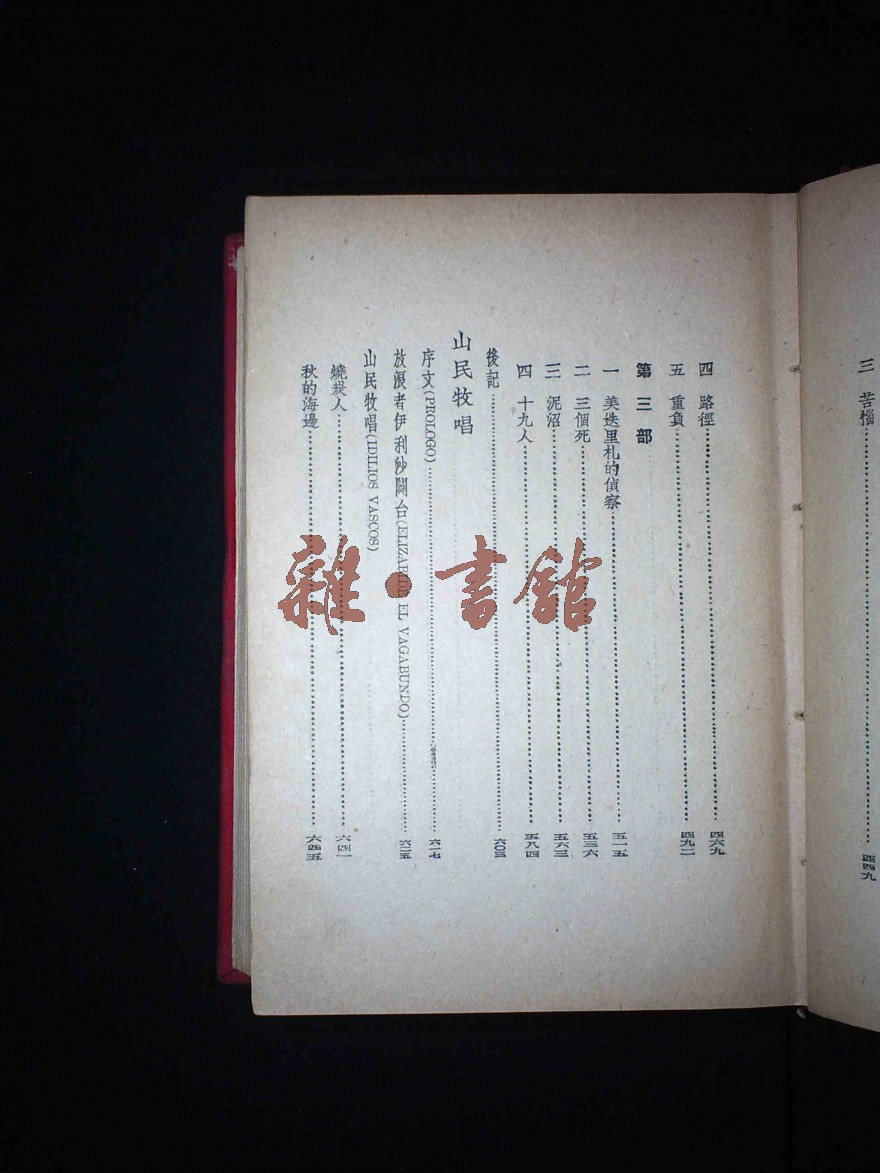 三 苦惱……四四九
四 路徑……四六九
五 重負……四九二
第三部
一 美迭里札的偵察……五一五
二 三個死……五三六
三 泥沼……五六三
四 十九人……五八四
後記……六〇三
山民牧唱
序文(PROLOGO)……六一七
放浪者伊利沙闢台(ELIZABIDE EL VAGABUNDO)……六二五
山民牧唱(IDILIOS VASCOS)
燒炭人……六四一
秋的海邊……六四五
雜·書館